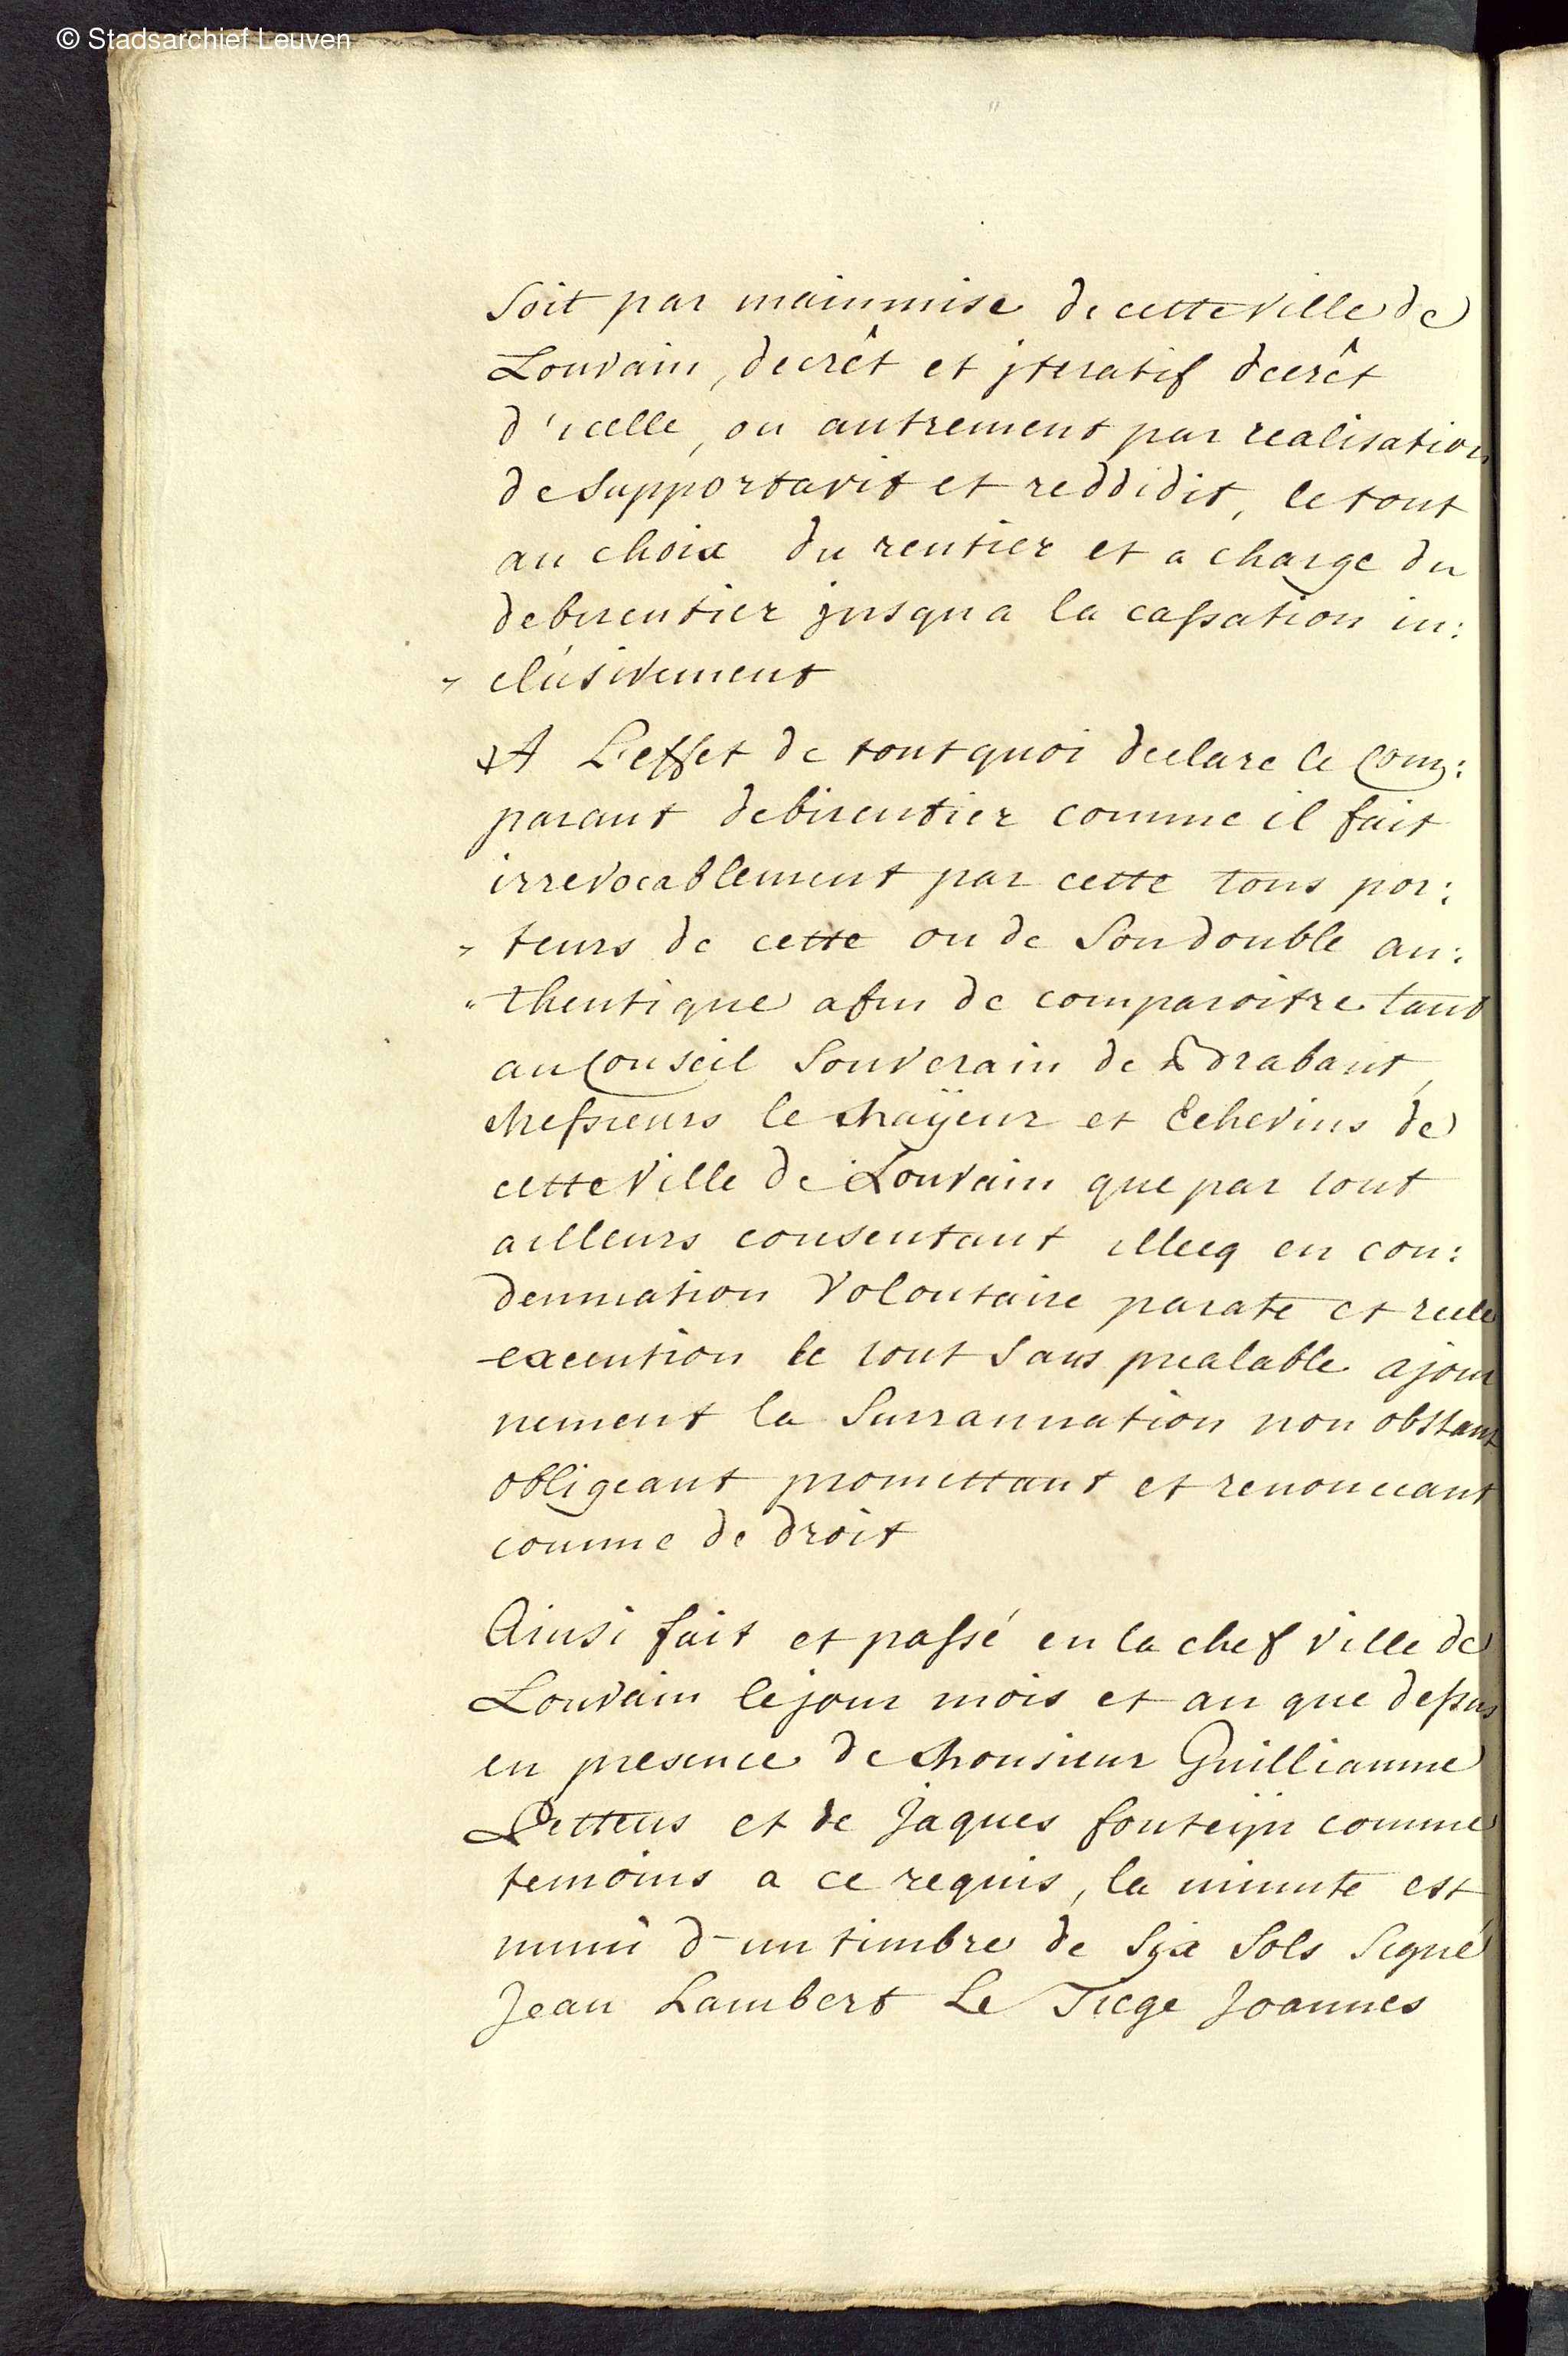 © Stadsarchief Leuven
Soit par mainmise de cette Ville de
Louvain, decrêt et jteratif decrêt
d'icelle, ou autrement par realisation
de supportavit et reddidit, le tout
au choix du rentier et a charge du
debirentier jusqu a la cassation in:
clusivement
A L'effet de tout quoi declare le Com:
parant debirentier comme il fait
irrevocablement par cette tous por:
teurs de cette ou de Son double au:
thentique afin de comparoitre tant
au Conseil Souverain de Brabant,
Messieurs le Maÿeur et Echevins de
cette Ville de Louvain que par tout
ailleurs consentant illecq en con:
demnation Volontaire parate et reele
execution le tout Sans prealable ajour
nement la Surrannation non obstant
obligeant promettant et renonceant
comme de droit
Ainsi fait et passé en la chef ville de
Louvain le jour mois et an que dessus
en presence de Monsieur Guilliaume
Pettens et de Jaques fonteijn comme
temoins a ce requis, la minute est
muni d'un timbre de Six Sols Signé
Jean Lambert Le Tiege Joannes